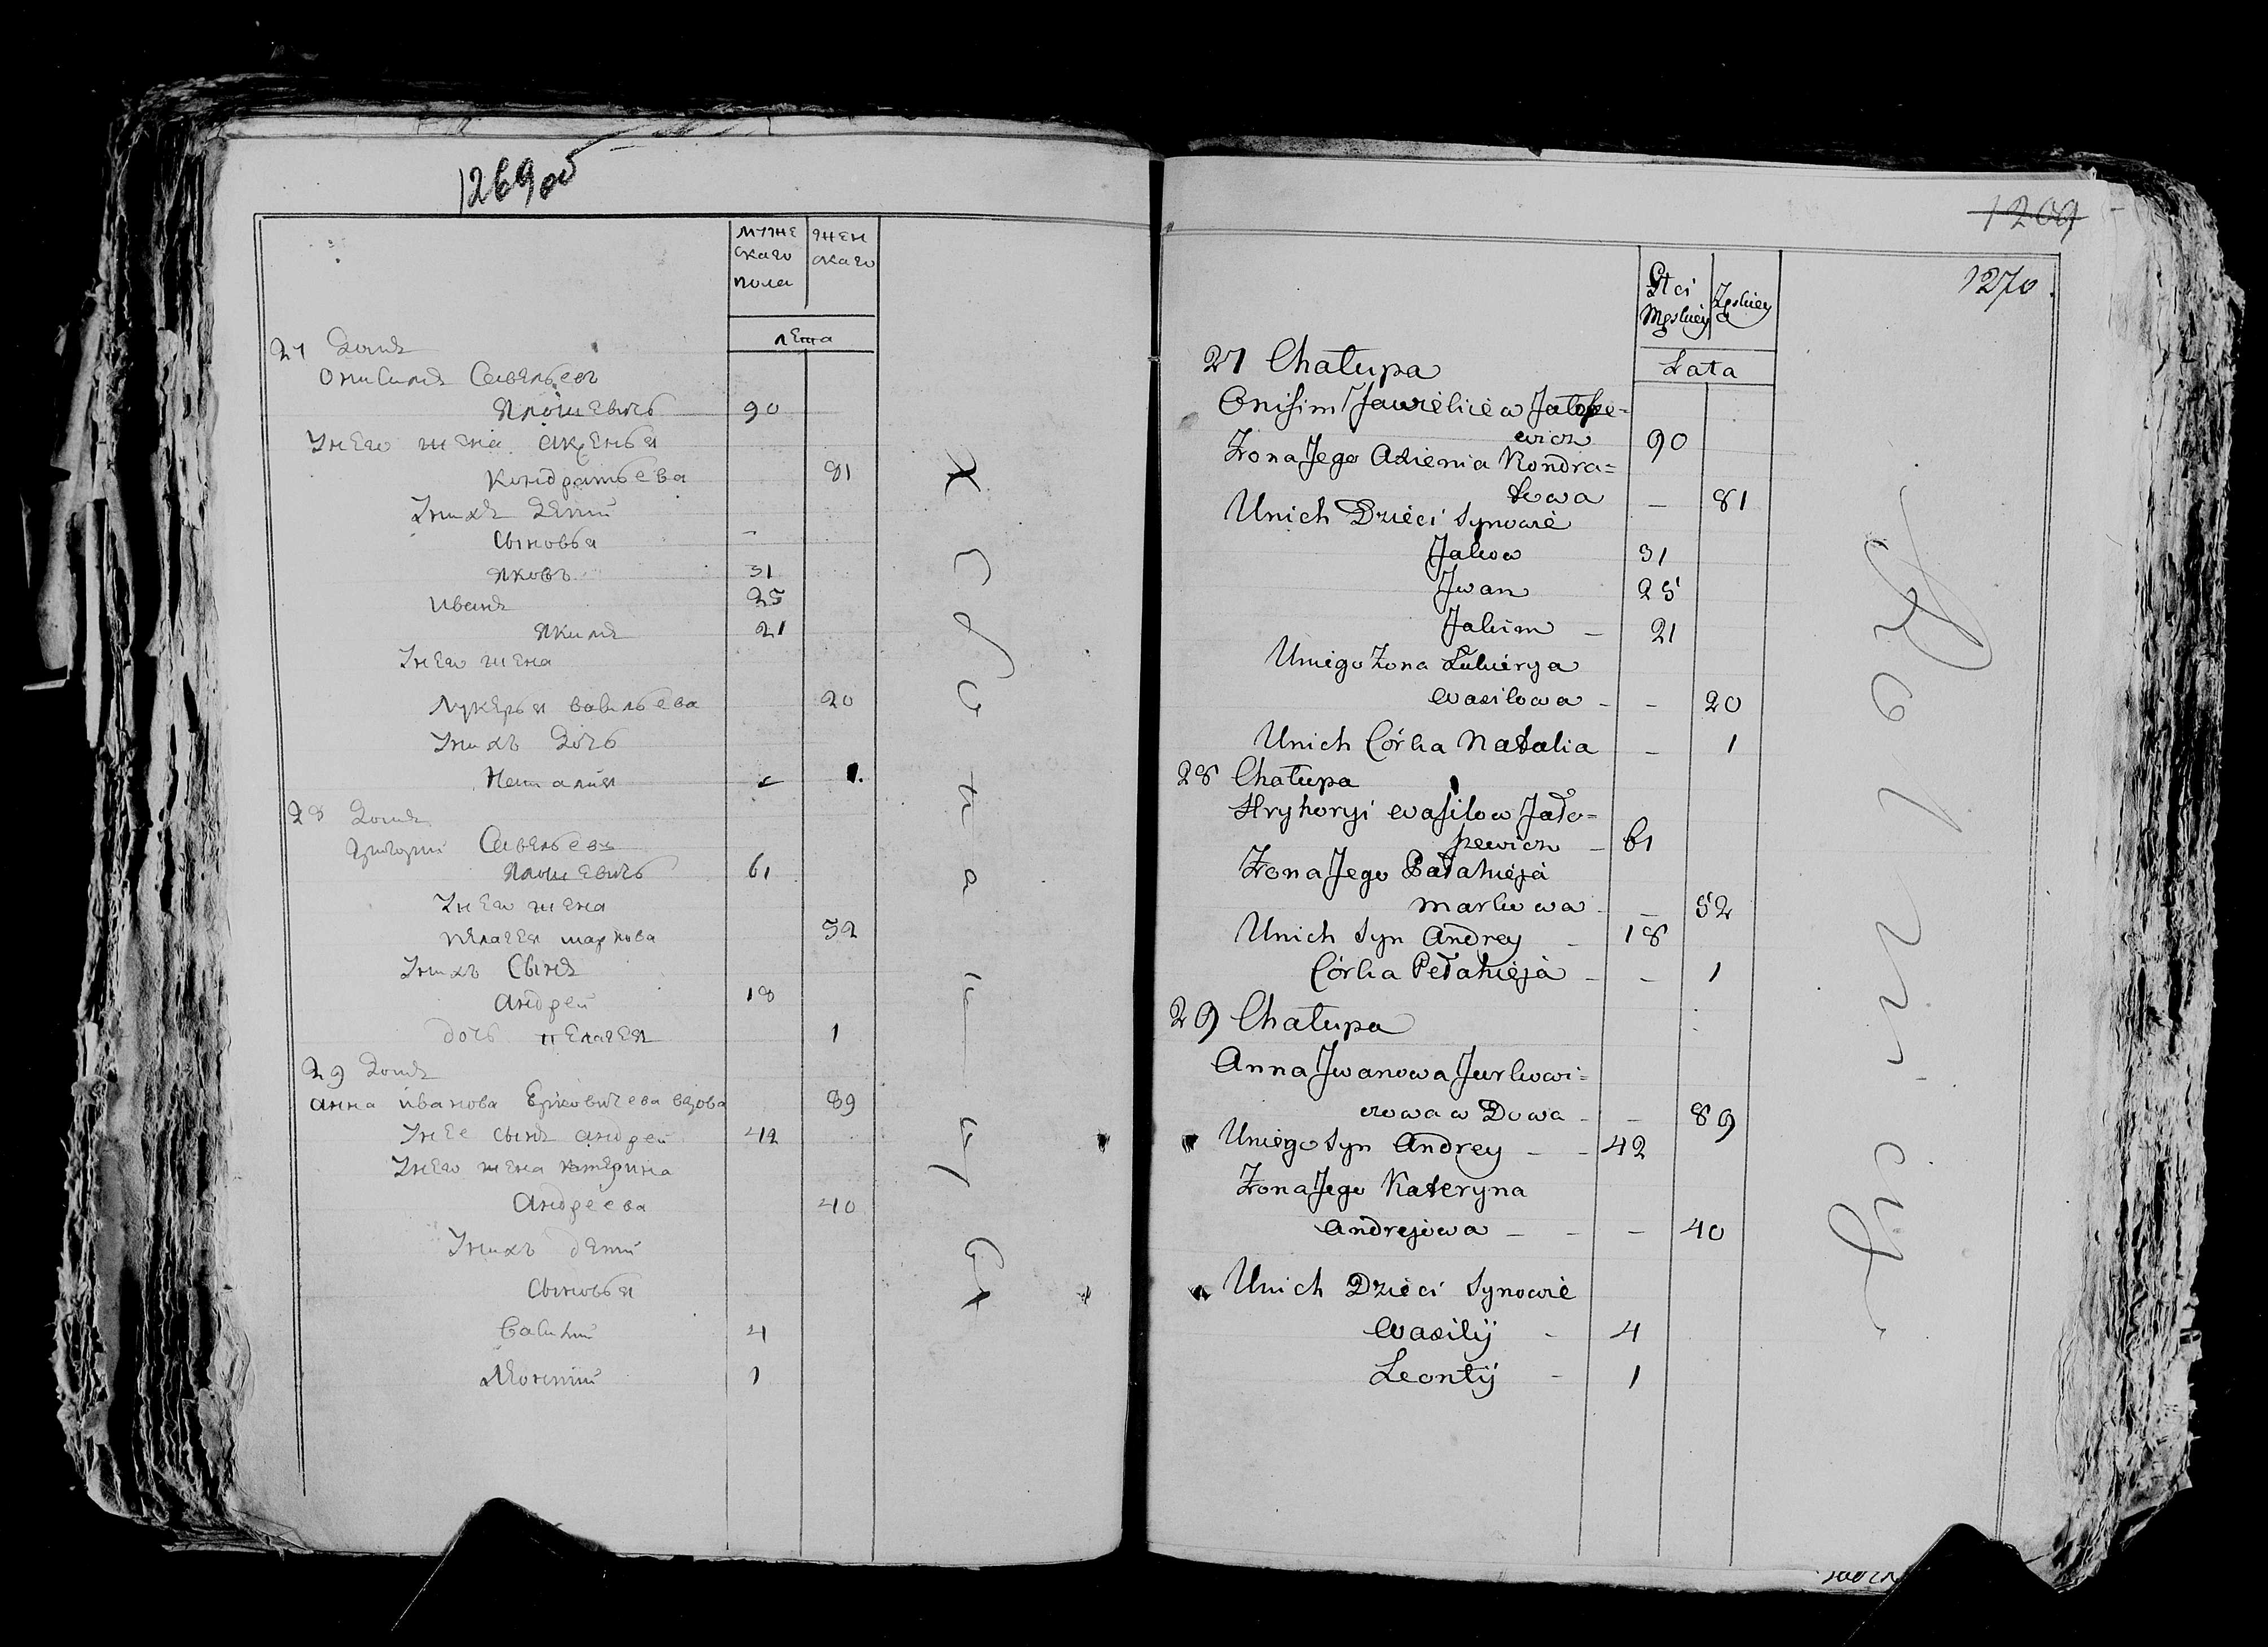 1269 об
мужескаго пола
женскаго
лета
27 Домъ
Онисимъ Савельевъ
Ялошевичь 90
У него жена Аксенья
Кондратьева 81
У нихъ дети
Сыновья -
Яковъ 31
Иванъ 25
Якимъ 21
У него жена
Лукерья Васильева 20
У нихъ Дочь
Наталия - 1.
28 Домъ
Григорий Савельевъ
Ялошевичь 61
У него жена
Пелагея Маркова 52
У нихъ Сынъ
Андрей 18
дочь Пелагея 1
29 Домъ
Анна Иванова Ерковичева вдова 89
У нее сынъ Андрей 42
У него жена Катерина
Андреева 40
У нихъ дети
Сыновья
Василий 4
Леонтий 1
1209
1270.
Płci Męskiey
Żeńskiey
Lata
27 Chałupa
Onisim Sawieliew Jało=
ewicz 90
Żona Jego Axienia Kondra=
towa - 81
Unich Dzieci Synowie
Jakow 31
Jwan 25
Jakim - 21
Uniego Żona Łukierya
Wasilowa - - 20
Unich Córka Natalia - 1
28 Chałupa
Hryhoryi Wasilow Jało=
szewicz - 61
Żona Jego Pałahieja
Markowa - - 52
Unich Syn Andrey - 18
Córka Pełahieja - - 1
29 Chałupa
Anna Jwanowa Jurkowi=
czowa w Dowa - - 89
Uniego Syn Andrey - - 42
Żona Jego Kateryna
Andrejowa - - - 40
Unich Dzieci Synowie
Wasilij - 4
Leontij - 1